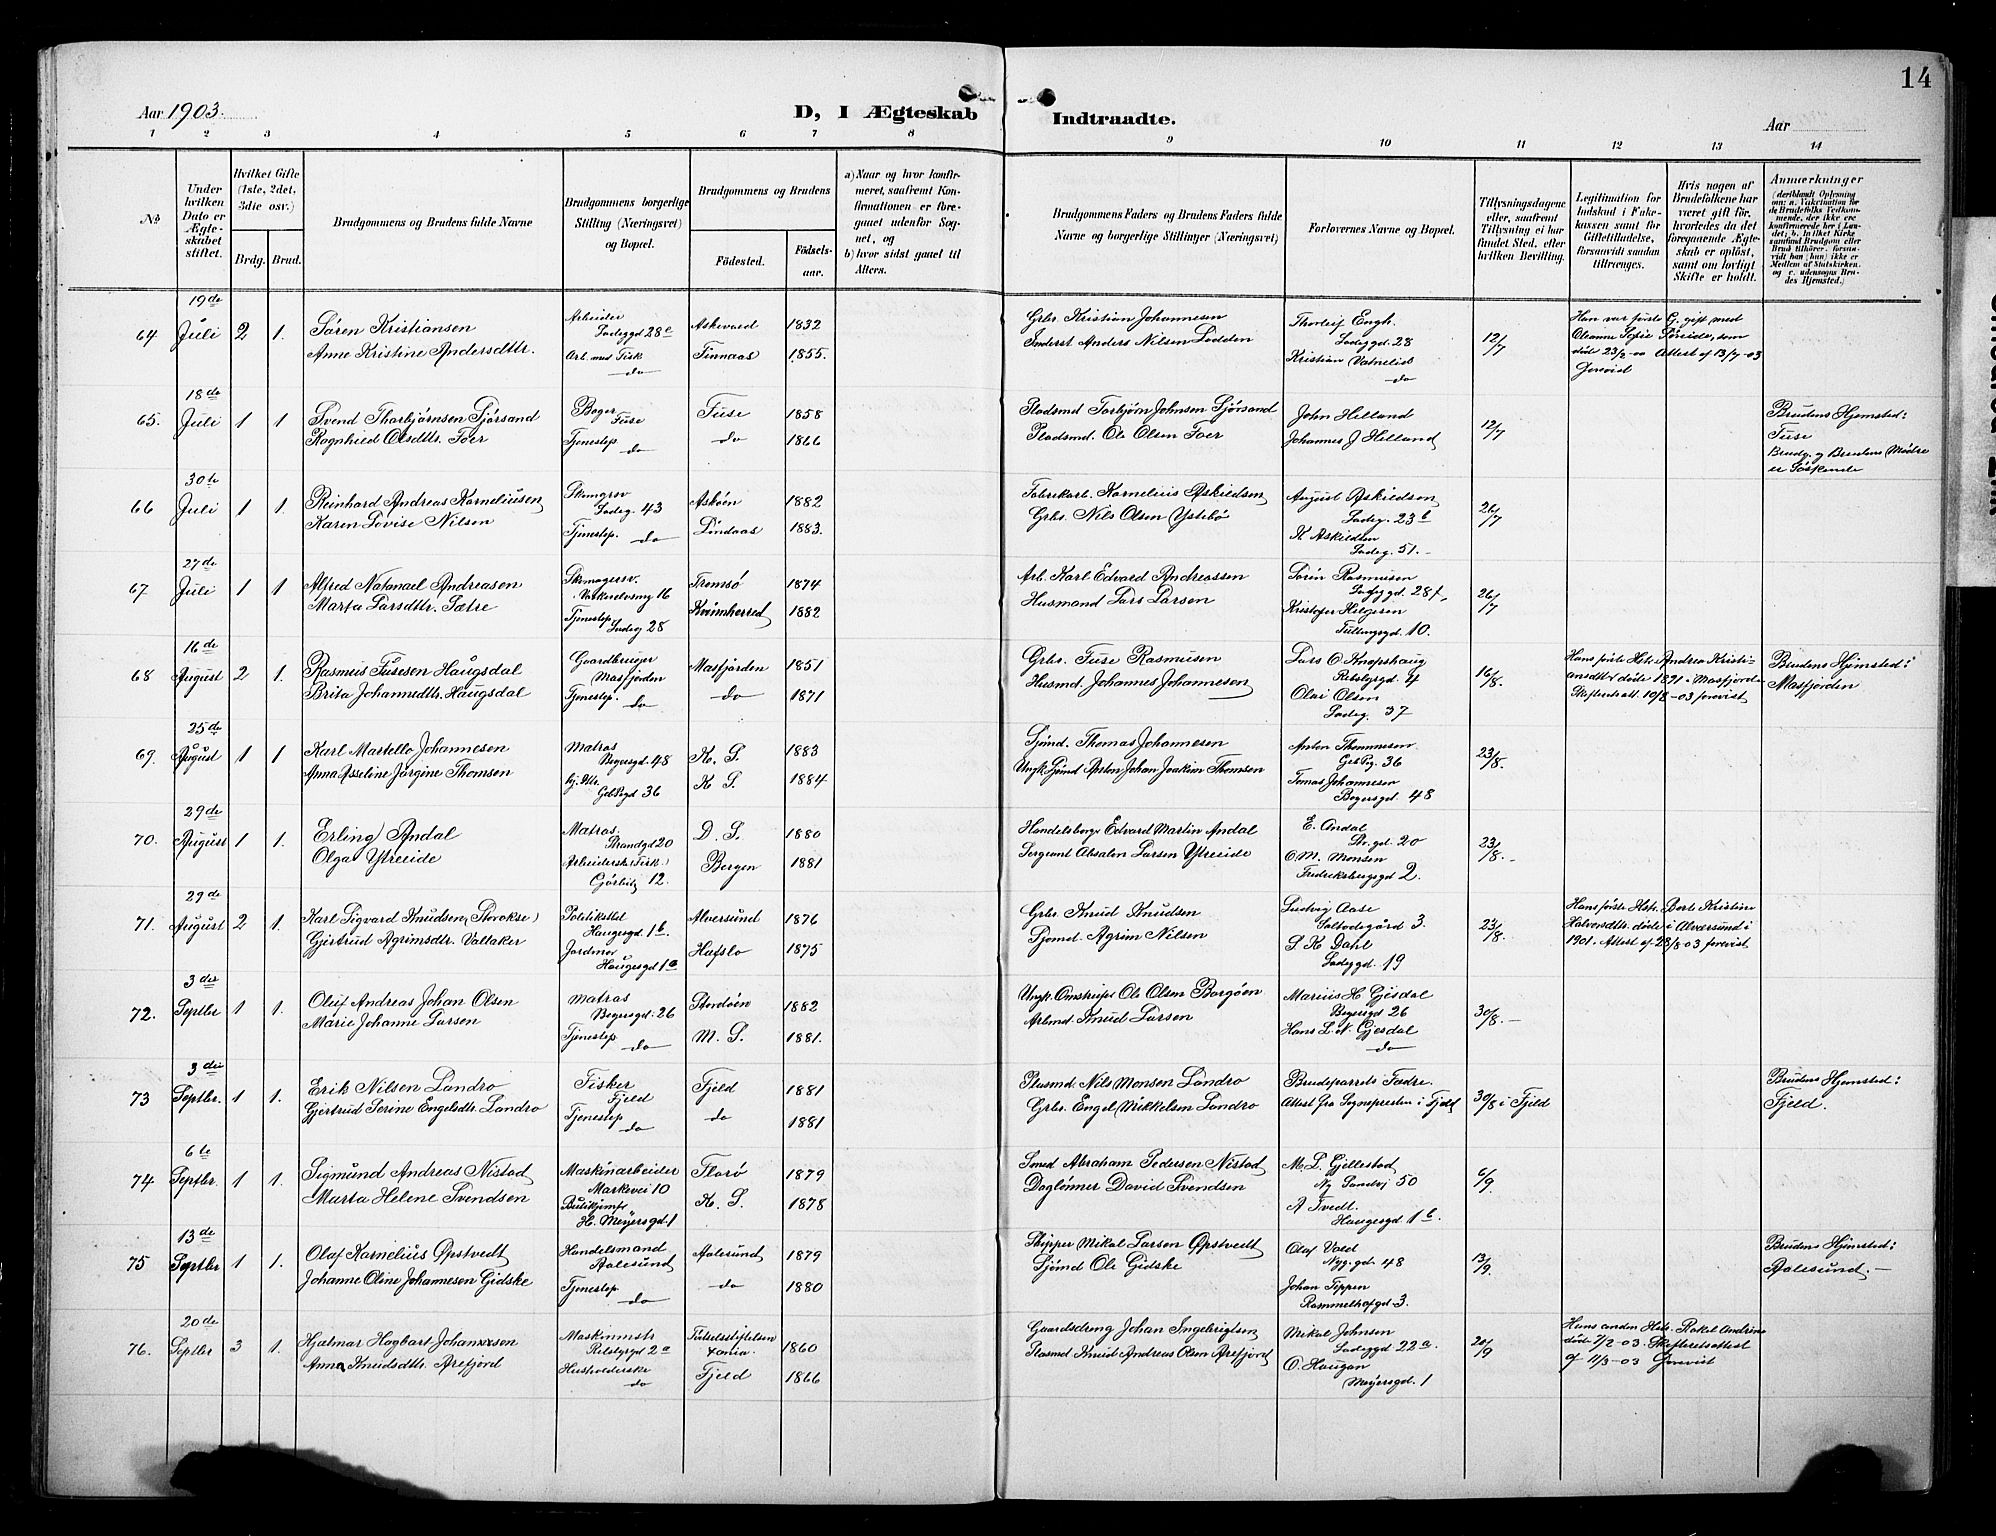 14
Aar 1903.
D, I Ægteskab Indtraadte.
Aar
1 2 3 4 5 6 7 8 9 10 11 12 13 14
No
Under hvilken Dato er Ægteskabet stiftet.
Hvilket Gifte (1ste, 2det, 3die osv.)
Brdg. Brud.
Brudgommens og Brudens fulde Navne
Brudgommens borgerlige Stilling (Næringsvei) og Bopæl.
Brudgommens og Brudens
Fødested. Fødselsaar.
a) Naar og hvor konfirmeret, saafremt Konfirmationen er foregaaet udenfor Sognet, og
b) hvor sidst gaaet til Alters.
Brudgommens Faders og Brudens Faders fulde Navne og borgerlige Stillinger (Næringsvei)
Forlovernes Navne og Bopæl.
Tillysningsdagene eller, saafremt Tillysning ei har fundet Sted, efter hvilken Bevilling.
Legitimation for Indskud i Enkekassen samt for Giftetilladelse, forsaavidt saadan tiltrænges.
Hvis nogen af Brudefolkene har været gift før, hvorledes da det foregaaende Ægteskab er opløst, samt om lovligt Skifte er holdt.
Anmærkninger
64 19de Juli 2 1.
Søren Kristiansen
Anne Kristine Andersdttr.
Arbeider
Ladeggd 28c
do
Askevold 1832
Finnaas 1855.
Grbr. Kristian Johannesen
Inderst Anders Nilsen Lodden
Thorleif Engh.
Ladeggd 28
Kristian Vatnelid
do
12/7
Han var første G. gift med
Oleanne Sofie, som
død 23/2-00 Attest af 13/7-03
forevist
65. 18de Juli 1 1
Svend Thorbjørnsen Sjørsand
Ragnhild Olsdttr. Foer
Fuse
Tjenestep. do
Fuse 1858
do 1866
Pladsmd Torbjørn Johnsen Sjørsand
Pladsmd. Ole Olsen Foer
John Helland
Johannes J Helland
12/7
Brudens Hjemsted:
Fuse
Brudg. og Brudens Mødre
er Søskende
66 30te Juli 1 1.
Reinhard Andreas Korneliusen
Karen Lovise Nilsen
Ladeg. 43
Tjenestep. do
Askøen 1882
Lindaas 1883.
Kornelius Askildsen
Grbr. Nils Olsen Ystebø
August Askildsen
Ladeg. 23b
K Askildsen
Ladeg. 51.-
26/7
67. 27de Juli 1 1
Alfred Natanael Andreasen
Marta Larsdttr. Sætre
Skomagersv.
16
Tjenestep
Ladeg 28
Tromsø 1874
Kvinnherred 1882
Arb. Karl Edvard Andreassen
Husmand Lars Larsen
Søren Rasmusen
Ladeggd 28
Kristofer Helgesen
10.
26/7
68 16de August 2 1.
Rasmus Fusesen Haugsdal
Brita Johannsdttr. Haugsdal
Gaardbruger
Masfjorden
Tjenestep. do
Masfjorden 1851
do 1871
Grbr. Fuse Rasmusen
Husmd. Johannes Johannesen
Lars O. Knapshaug
4
Olai Olsen
Ladeg. 37
16/8.
Hans første Hstr. Andrea Kristi-
ansdttr døde 1891 i Masfjord-
Skifteratt. 10/8-03 forevist
Brudens Hjemsted:
Masfjorden
69. 25de August 1 1
Karl Martello Johannesen
Anna Asseline Jørgine Thomsen
Matros
Bøgersgd. 48
36
K. S. 1883
K S. 1884
Sjømd. Thomas Johannesen
Ungk Sjømd Anton Johan Joakim Thomsen
Anton Thommesen
36
Tomas Johannesen
Bøgersgd 48
23/8.
70. 29de August 1 1.
Erling Andal
Olga Ytreeide
Matros.
Strandgd 20
12.
D. S. 1880
Bergen 1881
Handelsborgr Edvard Martin Andal
Sergeant Absalon Larsen Ytreeide
E. Andal
Str.gd. 20
O. M. Monsen
Fredriksbergsgd 2.
23/8.-
71. 29de August 2 1.
Karl Sigvard Knudsen (Storokse)
Gjertrud Agrimsdtr. Valaker
Haugesgd. 1b.
Jordmor
Haugesgd 1a
Alversund 1876
Hafslo 1875
Grbr. Knud Knudsen
Sjømd. Agrim Nilsen
Ludvig Aase
3.
S. K Dahl
Ladeggd. 19
23/8.
Hans første Hstr. Berte Kristine
Halvorsdttr. døde i Alversund i
1901. Attest af 28/8-03 forevist.
72. 3die Septbr 1 1.
Oluf Andreas Johan Olsen
Marie Johanne Larsen
Matros
Bøgersgd. 26
Tjenestep do
Stordøen 1882
M. S. 1881.
Ungk. Ole Olsen Borgøen
Arbmd. Knud Larsen
Marius H. Gjesdal
Bøgersgd 26
Hans L. N. Gjesdal
do
30/8.-
73 3die Septbr. 1 1.
Erik Nilsen Landro
Gjertrud Serine Engelsdtr. Landro
Fisker
Fjeld
Tjenestep do
Fjeld 1881
do 1881
Plasmd. Nils Monsen Landro
Grbr. Engel Mikkelsen Landro
Brudeparrets Fædre.
Attest fra Sognepresten i Fjeld
30/8 i Fjeld
Brudens Hjemsted:
Fjeld.
74 6te Septbr. 1 1.
Sigmund Andreas Nistad
Marta Helene Svendsen
Maskinarbeider
Markevei 10
Butikjomfr
H. Meyersgd. 1
Florø 1879
K. S. 1878
Smed Abraham Pedersen Nistad
Dagløner David Svendsen
M. L. Gjellestad
Ny Sandvj 50
A Tvedt.
Haugesgd. 1b.
6/9.
75 13de Septbr 1 1.
Olaf Kornelius Øpstvedt
Johanne Oline Johannesen Gidske
Handelsmand
Aalesund
Tjenestep. do
Aalesund 1879
do 1880
Skipper Mikal Larsen Øpstvedt
Sjømd Ole Gidske
Olaf Vold
Nyg.gd. 48
Johan Tippen
3.
13/9.
Brudens Hjemsted:
Aalesund.-
76. 20de Septbr 3 1.
Hjalmar Hagbart Johannesen
Anna Knudsdtr. Arefjord
Maskinmstr
2a
Husholderske
do
Fødselsstiftelsen
1860
Fjeld 1866
Gaardsdreng Johan Ingebrigtsen
Plasmd Knud Andreas Olsen Arefjord
Mikal Johnsen
Ladeggd 22a
O. Haugan
Meyersgd. 1
20/9
Hans anden Hstr. Rakel Andrine
døde 7/2-03. Skifteretsattest
af 11/3-03 forevist